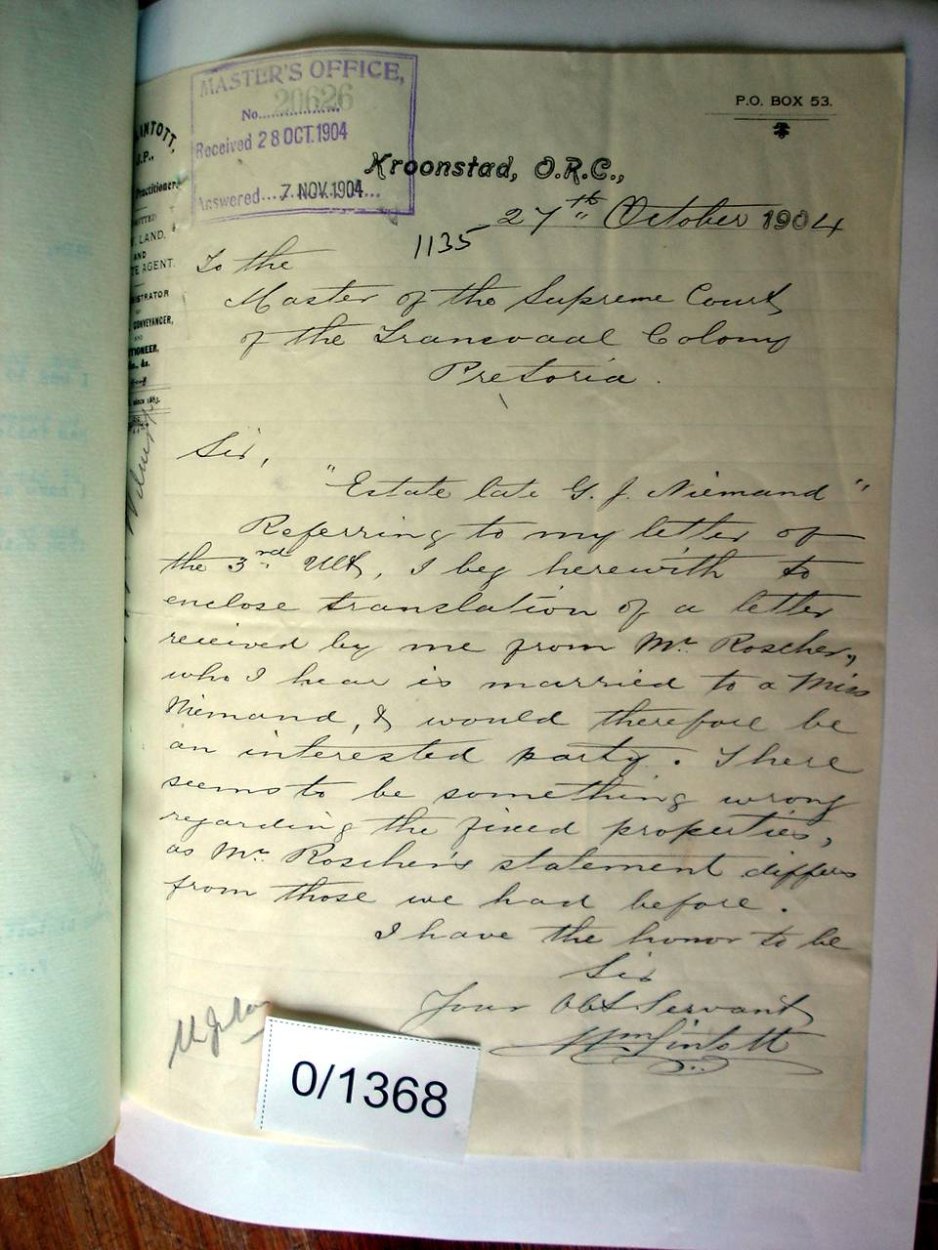 MASTER'S OFFICE,
No. 20626
Received 28 OCT. 1904
Answered 7 NOV. 1904
P.O. BOX 53.
INTOTT,
J.P.,
Practitioner
LAND,
AND
TE AGENT.
ISTRATOR
CONVEYANCER,
TIONEER,
Kroonstad, O.R.C.,
27th October 1904
1135
To the
Master of the Supreme Court
of the Transvaal Colony
Pretoria.
Sir,
"Estate late G. J. Niemand"
Referring to my letter of
the 3rd Ult, I beg herewith to
enclose translation of a letter
received by me from Mr Roscher,
who I hear is married to a Miss
Niemand, & would therefore be
an interested party. There
seems to be something wrong
regarding the fixed properties,
as Mr Roscher's statement differs
from those we had before.
I have the honor to be
Sir
Your Obt Servant
Wm Lintott
0/1368